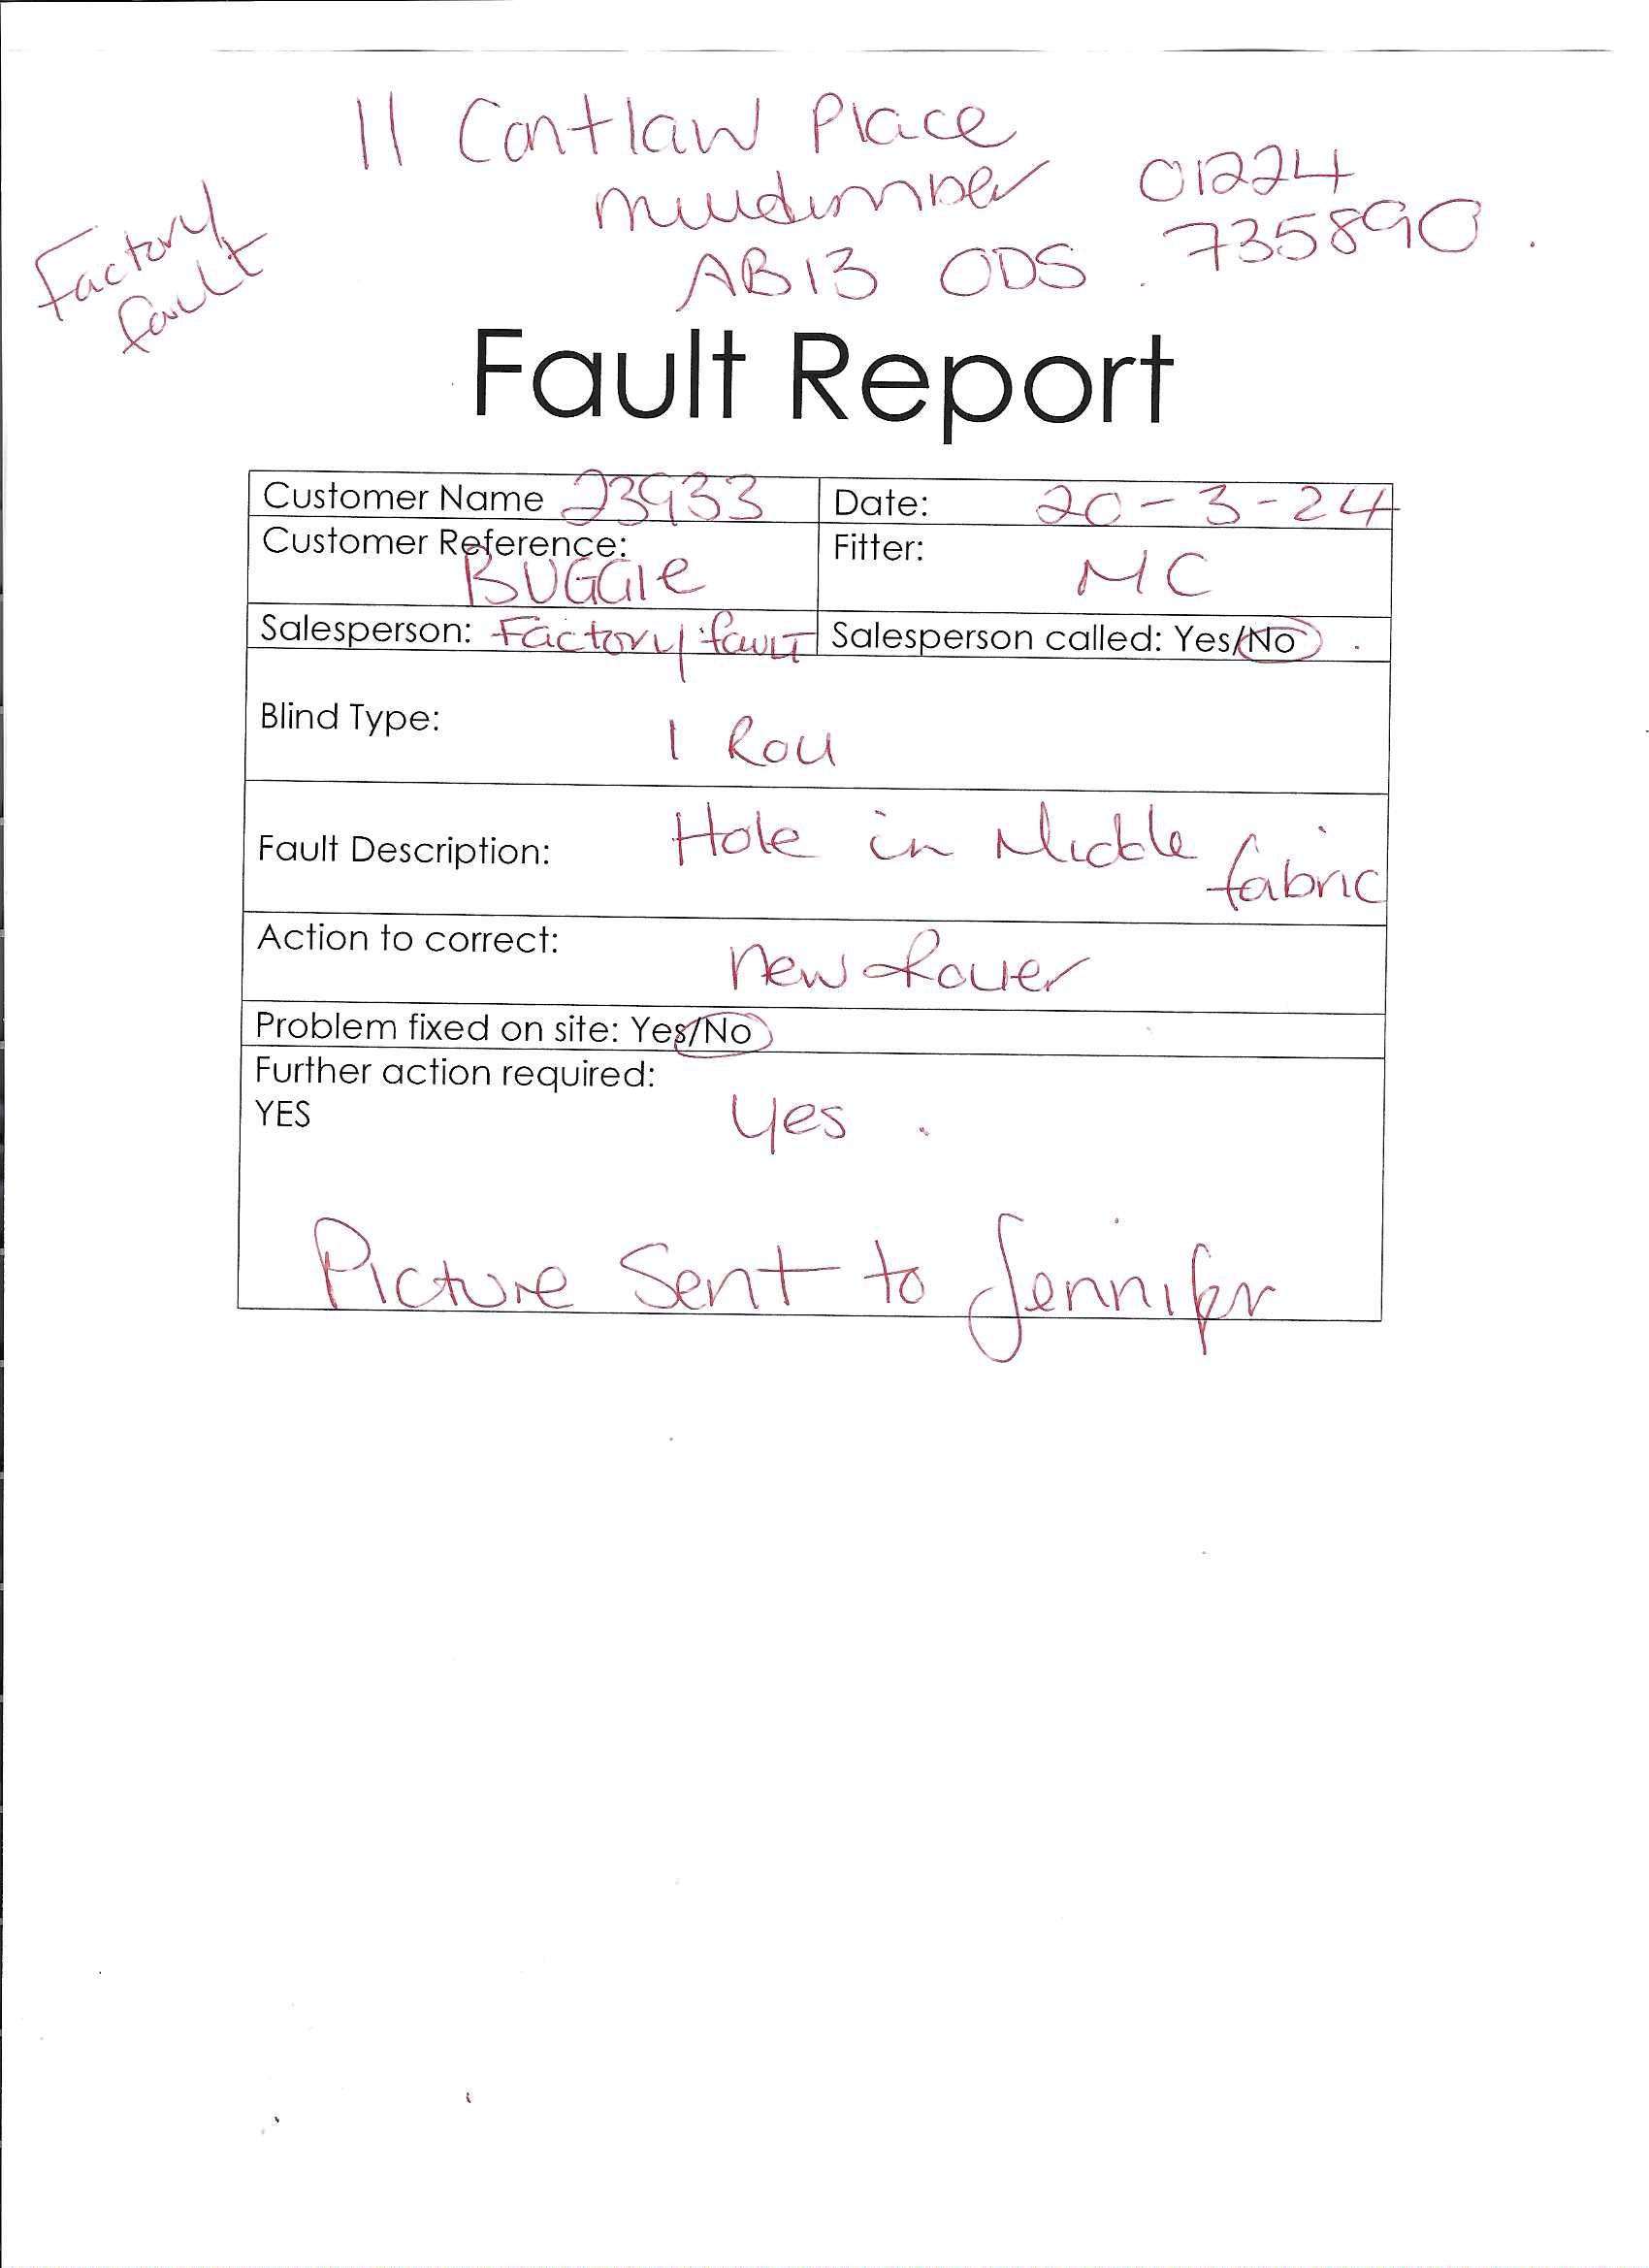 11 Contlaw Place
Milltimber 01224
AB13 0DS. 735890.
Factory
fault
Fault Report
Customer Name 23933 Date: 20-3-24
Customer Reference: BUGGIE Fitter: MC
Salesperson: Factory fault Salesperson called: Yes/No.
Blind Type: 1 Roll
Fault Description: Hole in Middle fabric
Action to correct: new Roller
Problem fixed on site: Yes/No
Further action required:
YES Yes.
Picture Sent to Jennifer